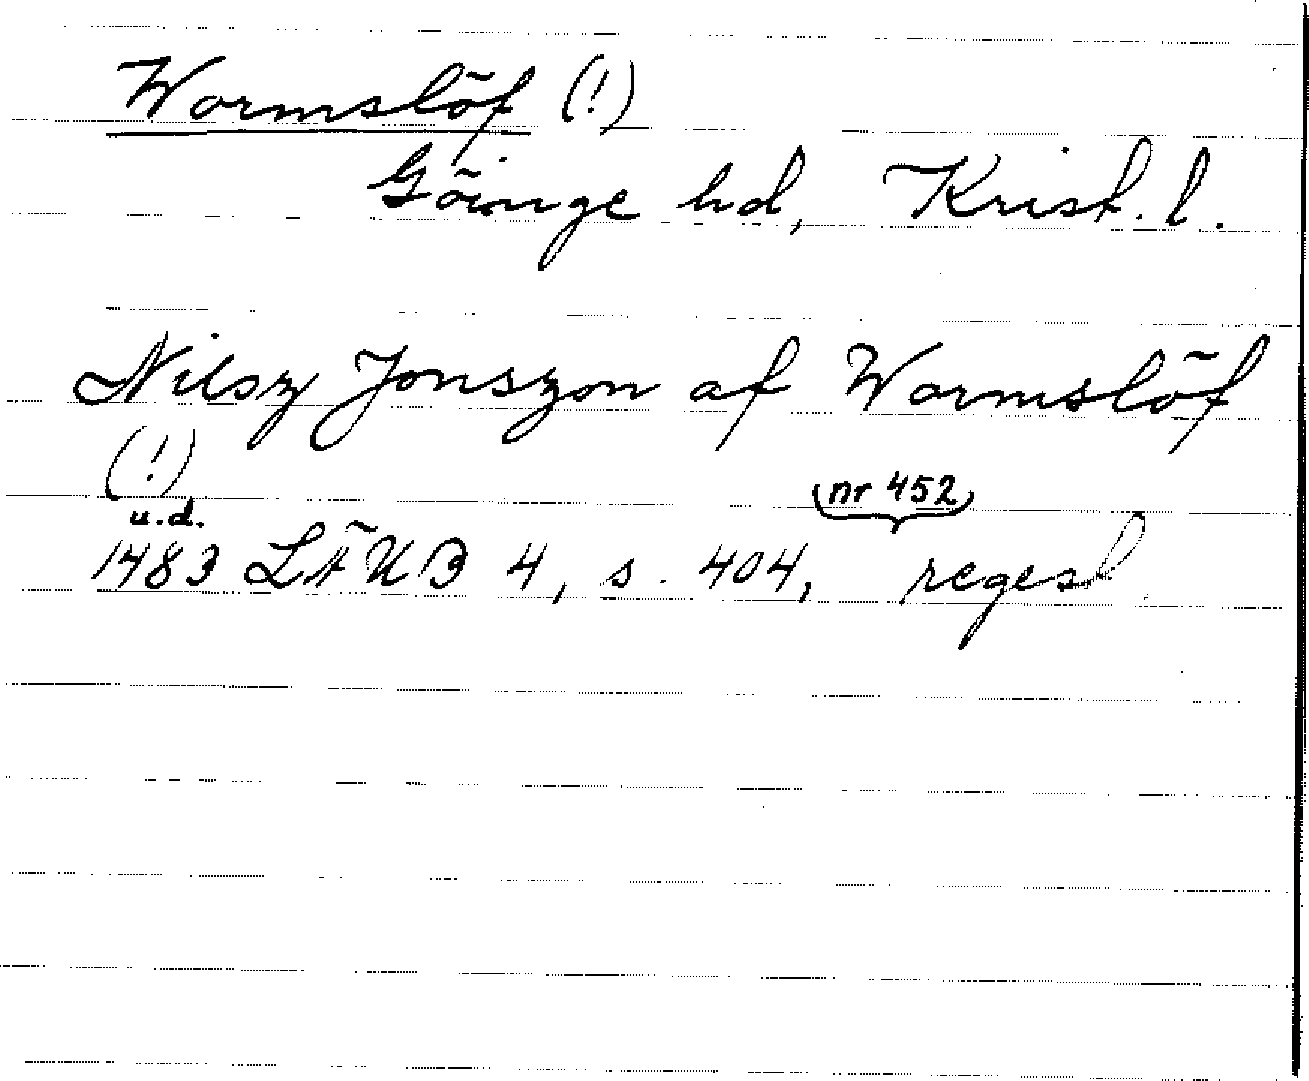 Wormslöf (!)
Göinge hd, Krist. l.
Nilsz Jonszon af Wormslöf
(!)
u.d. nr 452
1483 LÄUB 4, s. 404, regest